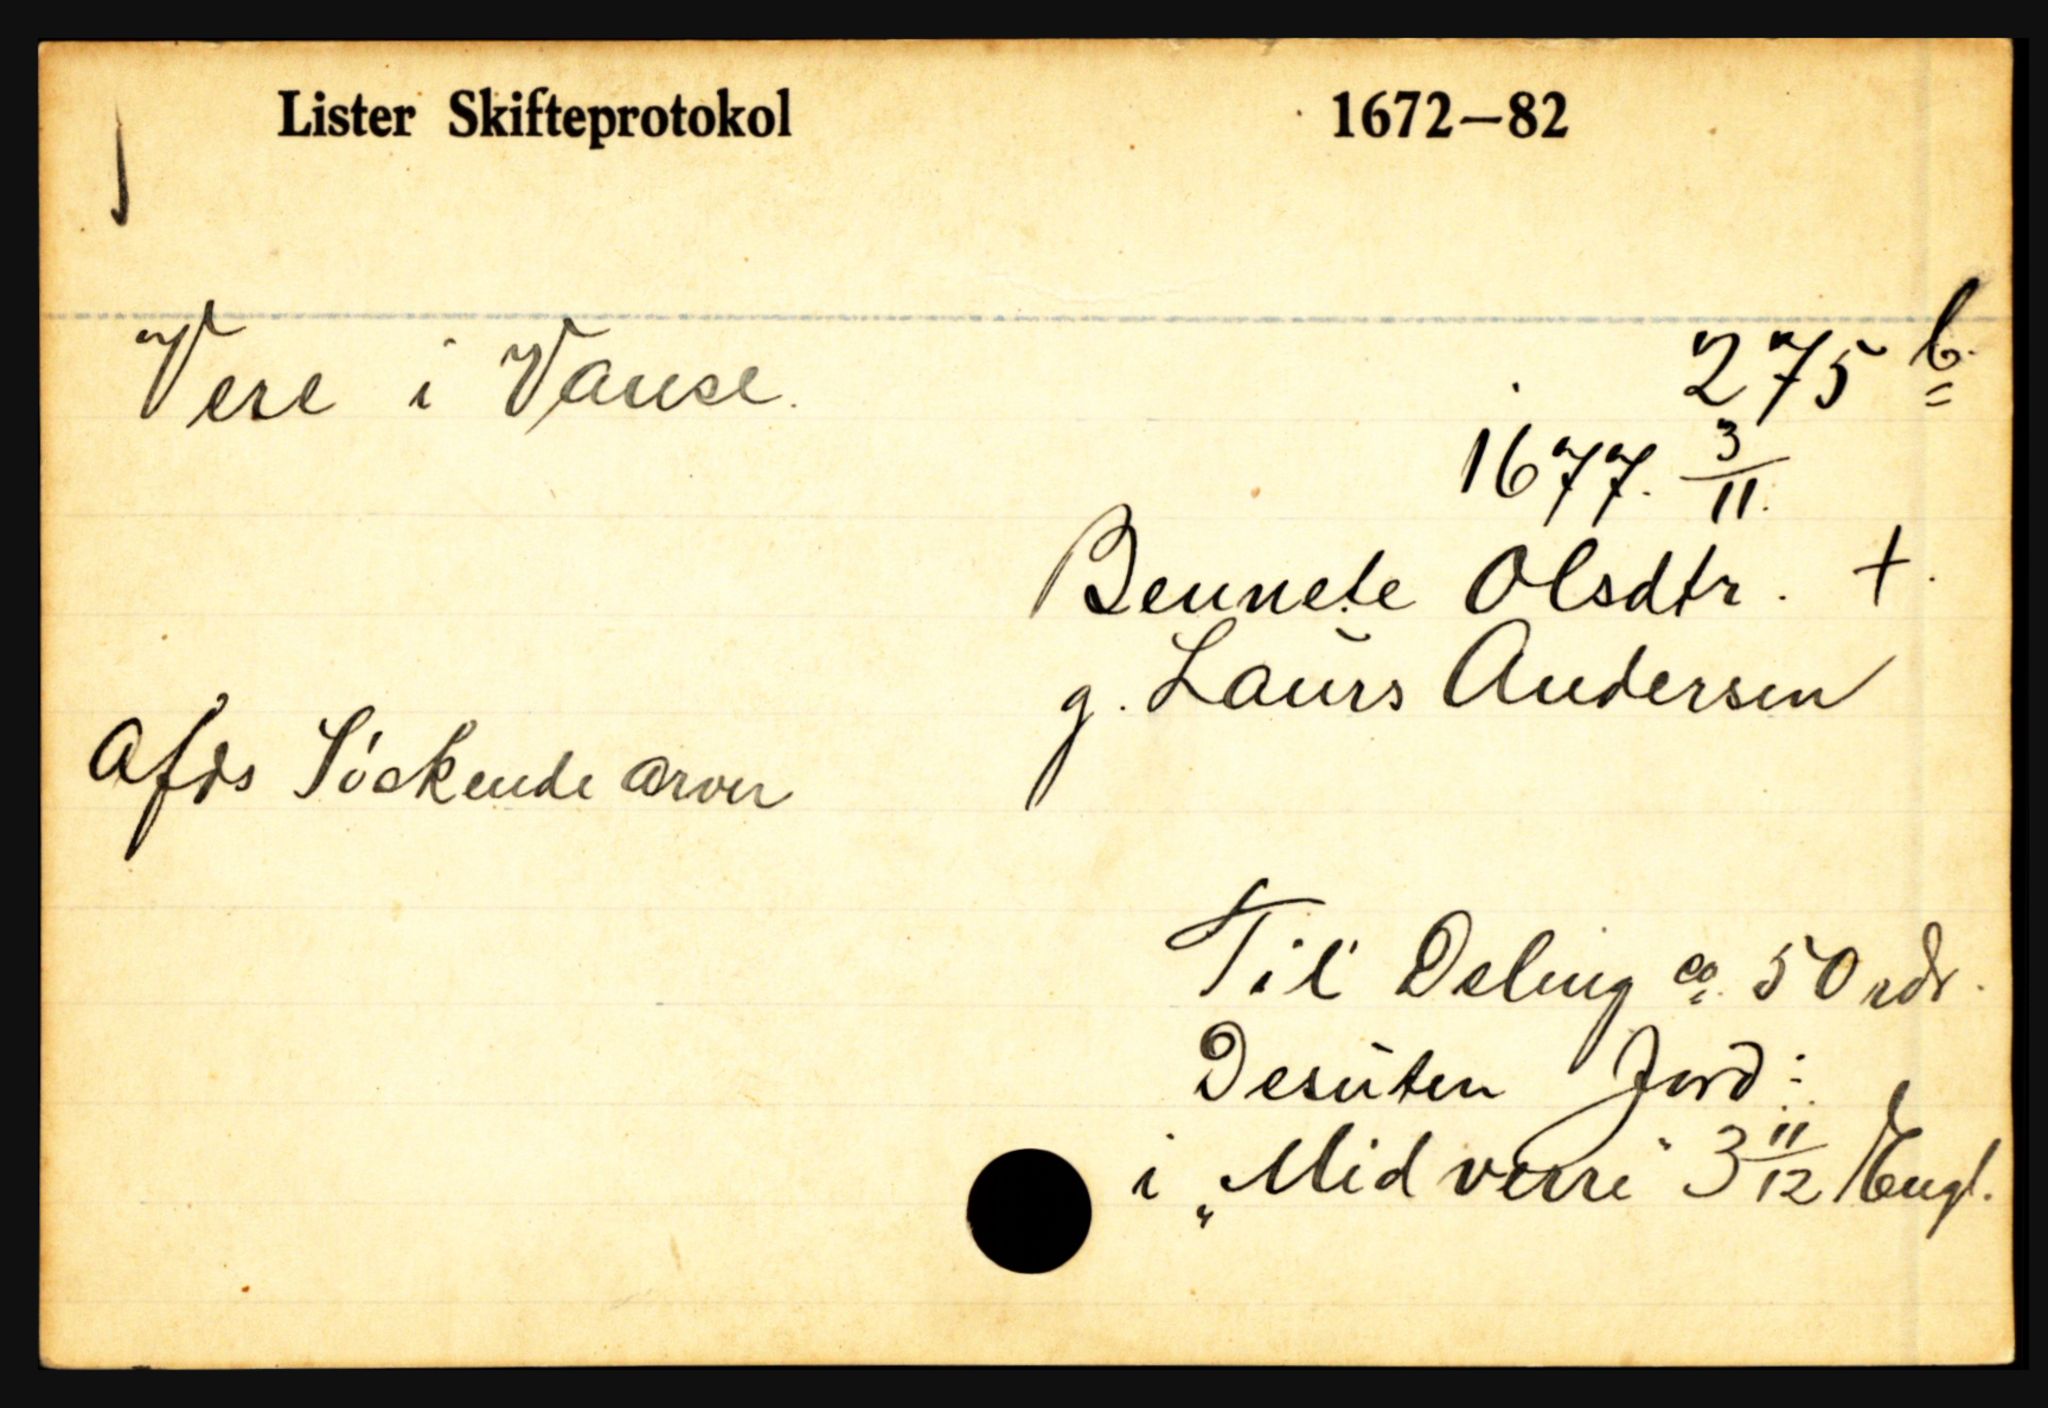 Lister Skifteprotokol 1672—82
Vere i Vanse. 275 b.
1677. 3/11.
Bennete Olsdtr. +.
g. Laurs Andersen
Afds Söskende arver
Til Deling ca. 50 rdr.
Desuten Jord:
i „Midverre" 3 11/12 Engl.